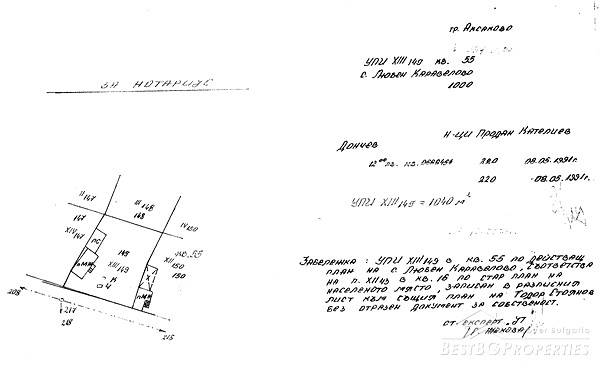 ЗА НОТАРИУС
гр. Аксаково
УПИ XIII 140 кв. 55
с. Любен Каравелово
1000
Н-ци Продан Кателиев
Дончев
220 08.05.1991г.
220 -08.05.1991г.
УПИ XIII 149 = 1040 м²
Забележка: УПИ XIII 149 в кв. 55 по действащ
план на с. Любен Каравелово, съответства
на п. XII 149 в кв. 16 по стар план на
населеното място, записан в разписния
лист към същия план на Тодор Стоянов
без отразен документ за собственост.
ст. експерт "УТ"
II 147
III 148
148
IV 150
147
XIV 147
ПС
149
XIII 149
кв. 55
XII
150
150
208
217
218
215
BESTBGPROPERTIES